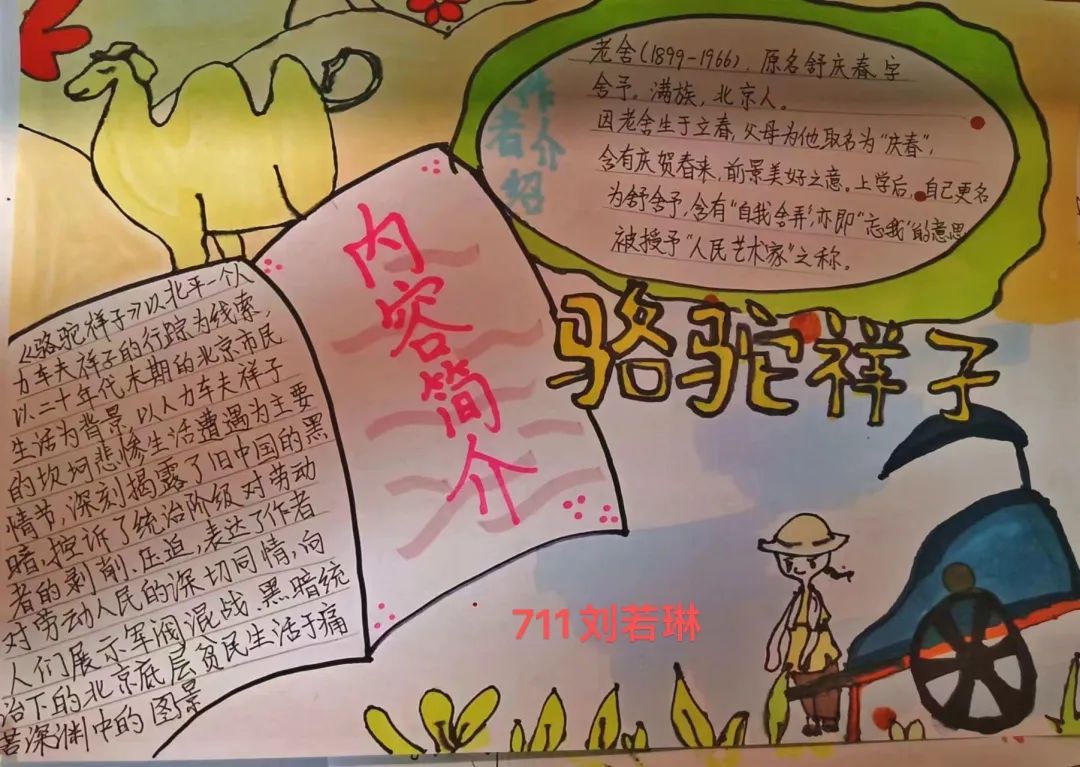 作者介绍
老舍(1899-1966),原名舒庆春,字
舍予。满族,北京人。
因老舍生于立春,父母为他取名为“庆春”,
含有庆贺春来,前景美好之意。上学后,自己更名
为舒舍予,含有“自我舍弃”,亦即“忘我”的意思
被授予“人民艺术家”之称。
骆驼祥子
内容简介
《骆驼祥子》以北平一个人
力车夫祥子的行踪为线索,
以二十年代末期的北京市民
生活为背景,以人力车夫祥子
的坎坷悲惨生活遭遇为主要
情节,深刻揭露了旧中国的黑
暗,控诉了统治阶级对劳动
者的剥削、压迫,表达了作者
对劳动人民的深切同情,向
人们展示军阀混战、黑暗统
治下的北京底层贫民生活于痛
苦深渊中的图景
711刘若琳